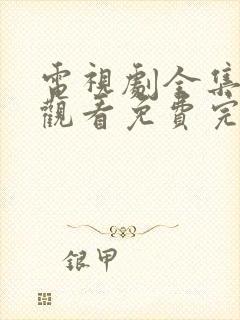 電視劇全集
觀看免費完
銀甲